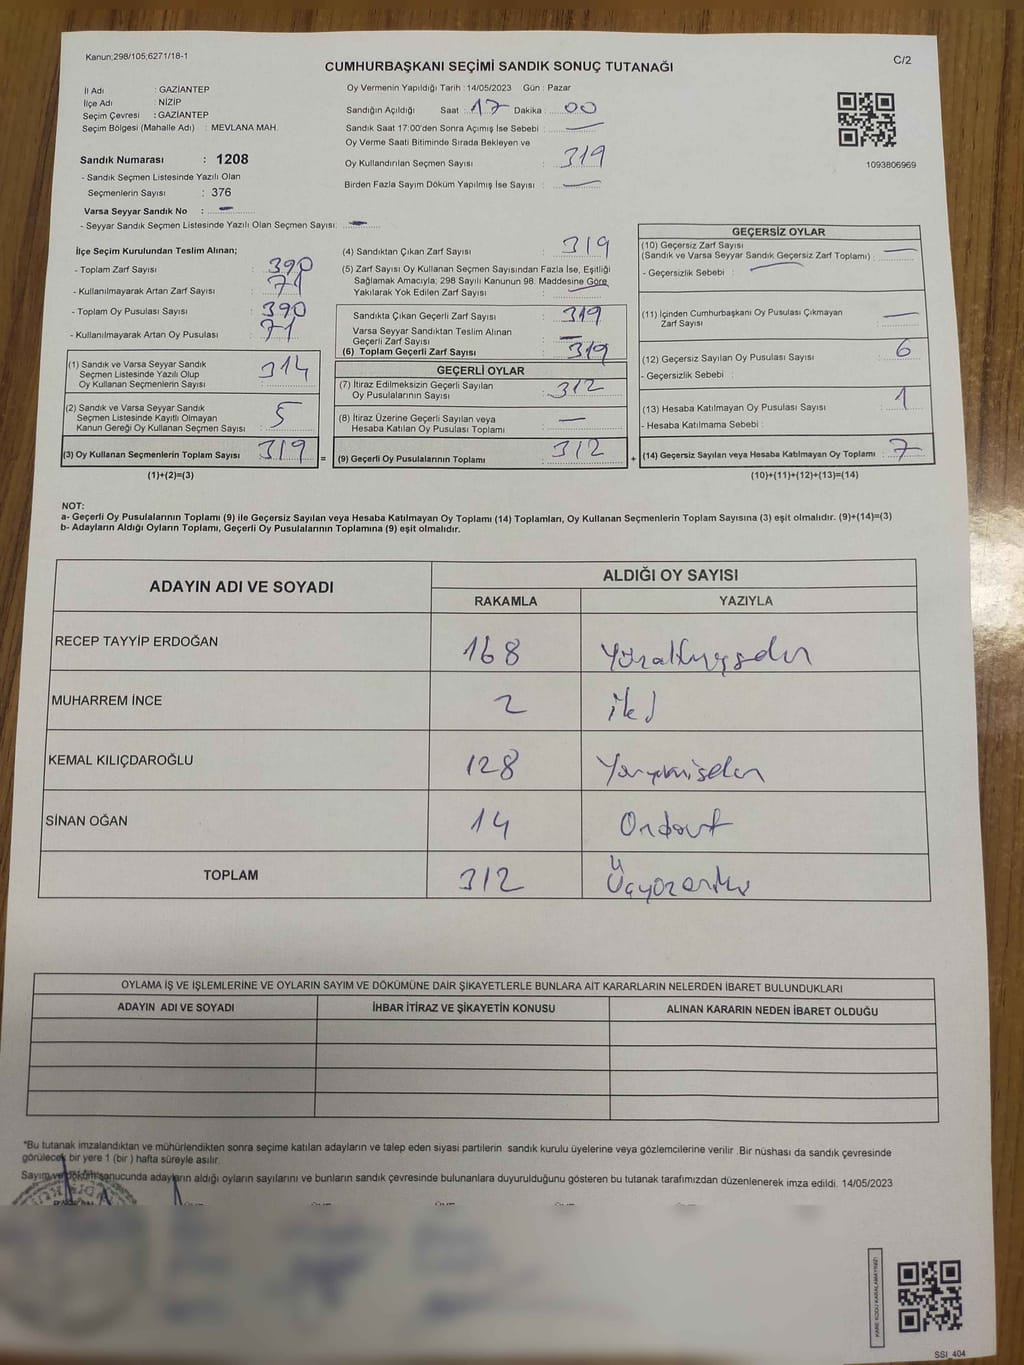 Kanun;298/105;6271/18-1
C/2
CUMHURBAŞKANI SEÇİMİ SANDIK SONUÇ TUTANAĞI
İl Adı : GAZİANTEP
İlçe Adı : NİZİP
Seçim Çevresi : GAZİANTEP
Seçim Bölgesi (Mahalle Adı) : MEVLANA MAH.
Sandık Numarası : 1208
- Sandık Seçmen Listesinde Yazılı Olan
Seçmenlerin Sayısı : 376
Varsa Seyyar Sandık No : -
- Seyyar Sandık Seçmen Listesinde Yazılı Olan Seçmen Sayısı: -
Oy Vermenin Yapıldığı Tarih : 14/05/2023 Gün : Pazar
Sandığın Açıldığı Saat : 17 Dakika : 00
Sandık Saat 17:00'den Sonra Açımış İse Sebebi : —
Oy Verme Saati Bitiminde Sırada Bekleyen ve
Oy Kullandırılan Seçmen Sayısı : 319
Birden Fazla Sayım Döküm Yapılmış İse Sayısı : —
1093806969
İlçe Seçim Kurulundan Teslim Alınan;
- Toplam Zarf Sayısı : 390
- Kullanılmayarak Artan Zarf Sayısı : 71
- Toplam Oy Pusulası Sayısı : 390
- Kullanılmayarak Artan Oy Pusulası : 71
(1) Sandık ve Varsa Seyyar Sandık
Seçmen Listesinde Yazılı Olup
Oy Kullanan Seçmenlerin Sayısı : 314
(2) Sandık ve Varsa Seyyar Sandık
Seçmen Listesinde Kayıtlı Olmayan
Kanun Gereği Oy Kullanan Seçmen Sayısı : 5
(3) Oy Kullanan Seçmenlerin Toplam Sayısı : 319
(1)+(2)=(3)
(4) Sandıktan Çıkan Zarf Sayısı : 319
(5) Zarf Sayısı Oy Kullanan Seçmen Sayısından Fazla İse, Eşitliği
Sağlamak Amacıyla; 298 Sayılı Kanunun 98. Maddesine Göre
Yakılarak Yok Edilen Zarf Sayısı : —
Sandıkta Çıkan Geçerli Zarf Sayısı : 319
Varsa Seyyar Sandıktan Teslim Alınan
Geçerli Zarf Sayısı : —
(6) Toplam Geçerli Zarf Sayısı : 319
GEÇERLİ OYLAR
(7) İtiraz Edilmeksizin Geçerli Sayılan
Oy Pusulalarının Sayısı : 312
(8) İtiraz Üzerine Geçerli Sayılan veya
Hesaba Katılan Oy Pusulası Toplamı : —
= (9) Geçerli Oy Pusulalarının Toplamı : 312
GEÇERSİZ OYLAR
(10) Geçersiz Zarf Sayısı
(Sandık ve Varsa Seyyar Sandık Geçersiz Zarf Toplamı) : —
- Geçersizlik Sebebi : —
(11) İçinden Cumhurbaşkanı Oy Pusulası Çıkmayan
Zarf Sayısı : —
(12) Geçersiz Sayılan Oy Pusulası Sayısı : 6
- Geçersizlik Sebebi :
(13) Hesaba Katılmayan Oy Pusulası Sayısı : 1
- Hesaba Katılmama Sebebi :
+ (14) Geçersiz Sayılan veya Hesaba Katılmayan Oy Toplamı : 7
(10)+(11)+(12)+(13)=(14)
NOT:
a- Geçerli Oy Pusulalarının Toplamı (9) ile Geçersiz Sayılan veya Hesaba Katılmayan Oy Toplamı (14) Toplamları, Oy Kullanan Seçmenlerin Toplam Sayısına (3) eşit olmalıdır. (9)+(14)=(3)
b- Adayların Aldığı Oyların Toplamı, Geçerli Oy Pusulalarının Toplamına (9) eşit olmalıdır.
ADAYIN ADI VE SOYADI
ALDIĞI OY SAYISI
RAKAMLA YAZIYLA
RECEP TAYYİP ERDOĞAN 168
MUHARREM İNCE 2 iki
KEMAL KILIÇDAROĞLU 128
SİNAN OĞAN 14 Ondört
TOPLAM 312
OYLAMA İŞ VE İŞLEMLERİNE VE OYLARIN SAYIM VE DÖKÜMÜNE DAİR ŞİKAYETLERLE BUNLARA AİT KARARLARIN NELERDEN İBARET BULUNDUKLARI
ADAYIN ADI VE SOYADI İHBAR İTİRAZ VE ŞİKAYETİN KONUSU ALINAN KARARIN NEDEN İBARET OLDUĞU
*Bu tutanak imzalandıktan ve mühürlendikten sonra seçime katılan adayların ve talep eden siyasi partilerin sandık kurulu üyelerine veya gözlemcilerine verilir .Bir nüshası da sandık çevresinde
görülecek bir yere 1 (bir ) hafta süreyle asılır.
Sayım ve döküm sonucunda adayların aldığı oyların sayılarını ve bunların sandık çevresinde bulunanlara duyurulduğunu gösteren bu tutanak tarafımızdan düzenlenerek imza edildi. 14/05/2023
KARE KODU KARALAMAYINIZ!
SSI_404